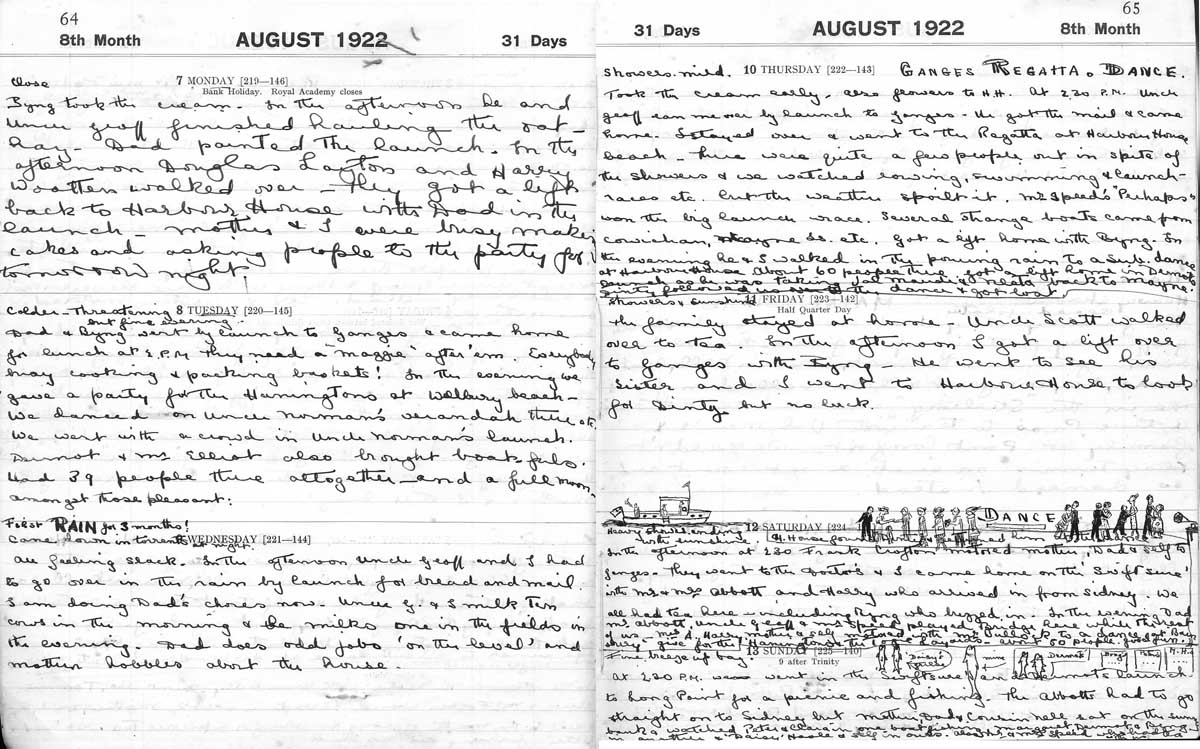 64
8th Month AUGUST 1922 31 Days
Close 7 MONDAY [219—146]
Bank Holiday. Royal Academy closes
Byng took the cream. In the afternoon he and
Uncle Geoff finished hauling the oat-
hay. Dad painted the launch. In the
afternoon Douglas Layton and Harry
Wootten walked over — They got a lift
back to Harbour House with Dad in the
launch — mother & I were busy making
cakes and asking people to the party for
tomorrow night.
Colder - Threatening 8 TUESDAY [220—145]
but fine evening.
Dad & Byng went by launch to Ganges & came home
for lunch at 2 P.M. They need a "maggie" after 'em. Everybody
busy cooking & packing baskets! In the evening we
gave a party for the Hanningtons at Welbury beach —
We danced on Uncle Norman's verandah there etc.
We went with a crowd in Uncle Norman's launch.
Dermot & Mr Elliot also brought boat-fuls.
Had 39 people there altogether — and a full moon —
amongst those pleasant:
First RAIN for 3 months!
Came down in torrents at night. WEDNESDAY [221—144]
All feeling slack. In the afternoon Uncle Geoff and I had
to go over in the rain by launch for bread and mail.
I am doing Dad's chores now. Uncle G. & I milk ten
cows in the morning & he milks one in the fields in
the evening. Dad does odd jobs 'on the level' and
mother hobbles about the house.
65
31 Days AUGUST 1922 8th Month
Showers. mild. 10 THURSDAY [222—143] GANGES REGATTA. DANCE.
Took the cream early, also flowers to H.H. At 2.30 P.M. Uncle
Geoff ran me over by launch to Ganges - He got the mail & came
home. I stayed over & went to the Regatta at Harbour House
beach — There were quite a few people out in spite of
the showers & we watched rowing, swimming & launch-
races etc. but the weather spoilt it. Mr Speed's "Perhaps"
won the big launch race. Several strange boats came from
Cowichan, Mayne Is. etc. Got a lift home with Byng. In
the evening he & I walked in the pouring rain to a sub. dance
at Harbour House. About 60 people there. Got a lift home in Dermot's
launch as he was taking Val, Maudie & Nella back to Mayne.
Dinty followed us over to the dance & got lost.
Showers & sunshine 11 FRIDAY [223—142]
Half Quarter Day
The family stayed at home — Uncle Scott walked
over to tea. In the afternoon I got a lift over
to Ganges with Byng — He went to see his
sister and I went to Harbour House, to look
for Dinty but no luck.
DANCE
Heavy showers ending 12 SATURDAY [224
with sunshine. H. House found him
In the afternoon at 2.30 Frank Crofton motored mother, Dad & self to
Ganges. They went to the Doctor's & I came home on the "Swiftsure"
with Mr & Mrs Abbott and Harry who arrived in from Sidney. We
all had tea here — including Byng who buzzed in. In the evening Dad
Mr Abbott, Uncle Geoff & Mr Speed played bridge here while the rest
of us — Mrs A, Harry, mother & self motored with to a dance at
50 people
13 SUNDAY [225—140]
9 after Trinity
Fine, breeze up bay.
mine Dermot's
At 2.30 P.M. we went in the Swiftsure and Dermot's launch
to Long Point for a picnic and fishing. The Abbotts had to go
straight on to Sidney but mother, Dad & Cousin Nell sat on the sunny
bank & watched Peter & in one boat fishing
in another & Daisy & self in